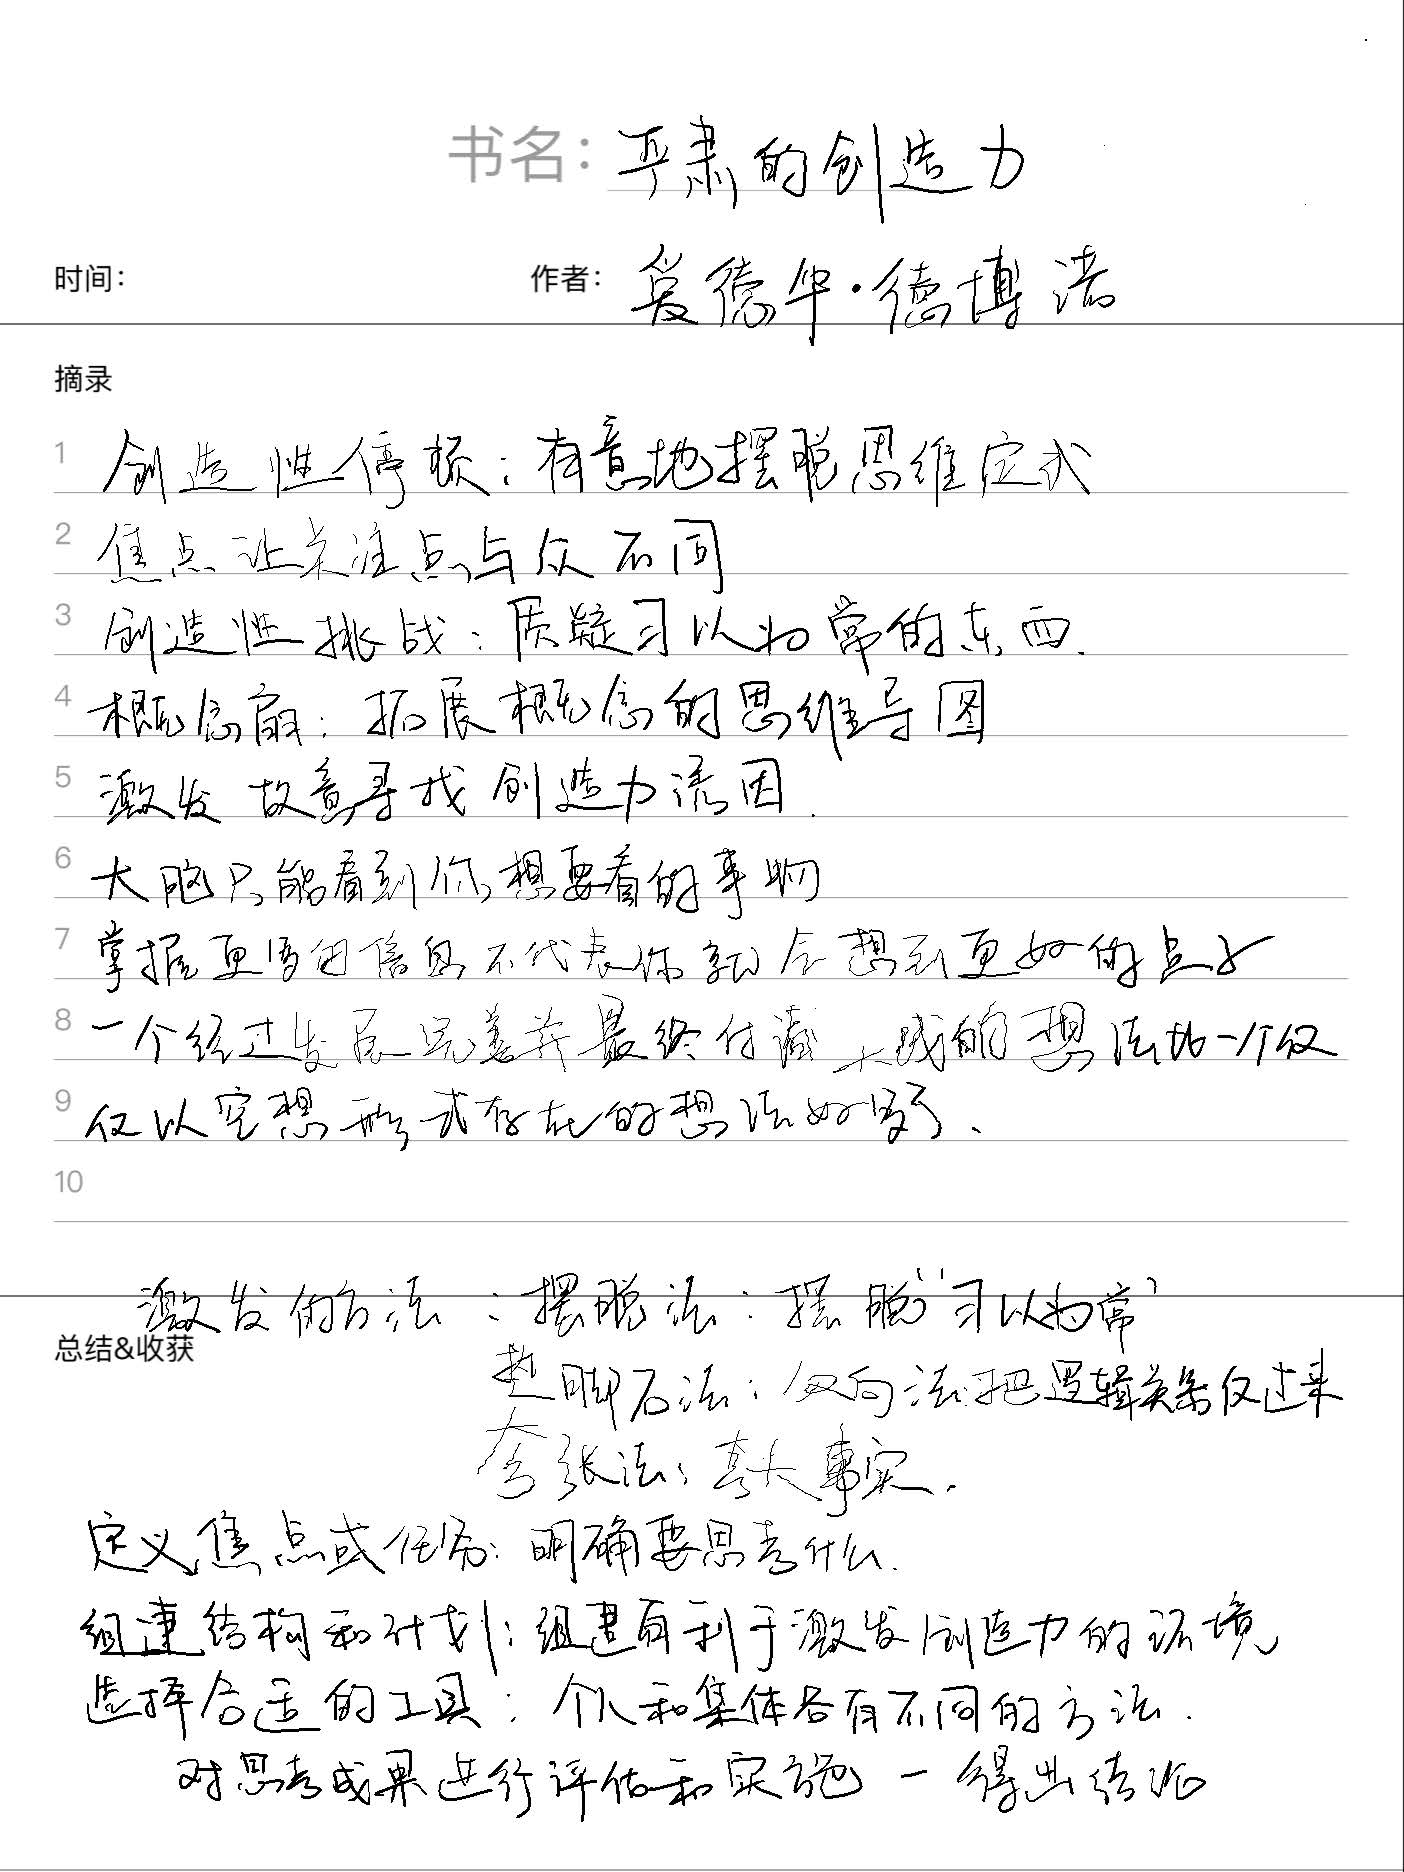 书名：严肃的创造力
时间： 作者：爱德华·德博诺
摘录
1 创造性停顿：有意地摆脱思维定式
2 焦点让关注点与众不同
3 创造性挑战：质疑习以为常的东西.
4 概念扇：拓展概念的思维导图
5 激发 故意寻找创造力诱因.
6 大脑只能看到你想要看的事物
7 掌握更多的信息不代表你就会想到更好的点子
8 一个经过发展完善并最终付诸实践的想法比一个仅
9 仅以空想形式存在的想法好多了.
10
激发的方法：摆脱法：摆脱“习以为常”
总结&收获
垫脚石法：反向法：把逻辑关系反过来
夸张法：夸大事实.
定义焦点或任务：明确要思考什么.
组建结构和计划：组建有利于激发创造力的环境
选择合适的工具：个人和集体各有不同的方法.
对思考成果进行评估和实施 — 得出结论